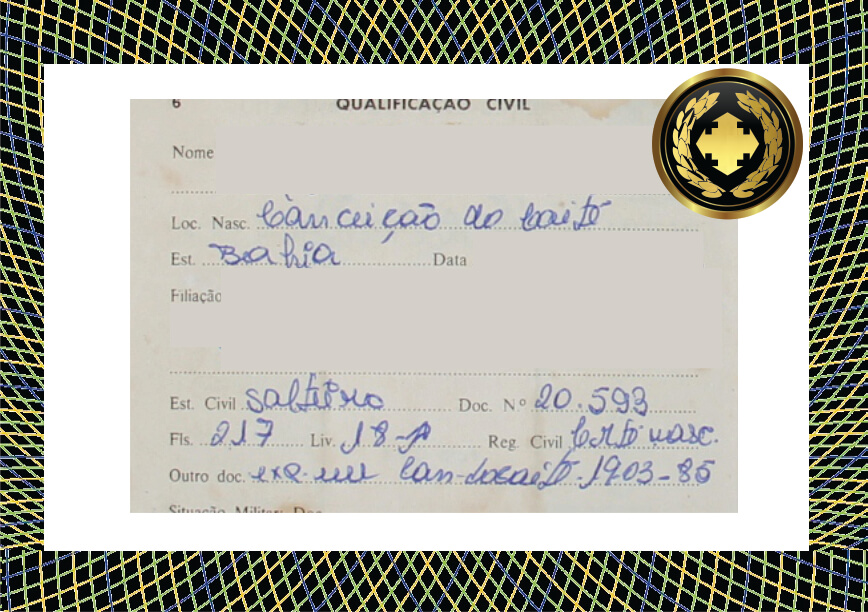 6 QUALIFICAÇÃO CIVIL
Nome
Loc. Nasc. Conceição do Coité
Est. Bahia Data
Filiação
Est. Civil Solteiro Doc. Nº 20.593
Fls. 217 Liv. 18-A Reg. Civil Cert. nasc.
Outro doc. exp. em Con-docoité-1903-85
Situação Militar: Doc.